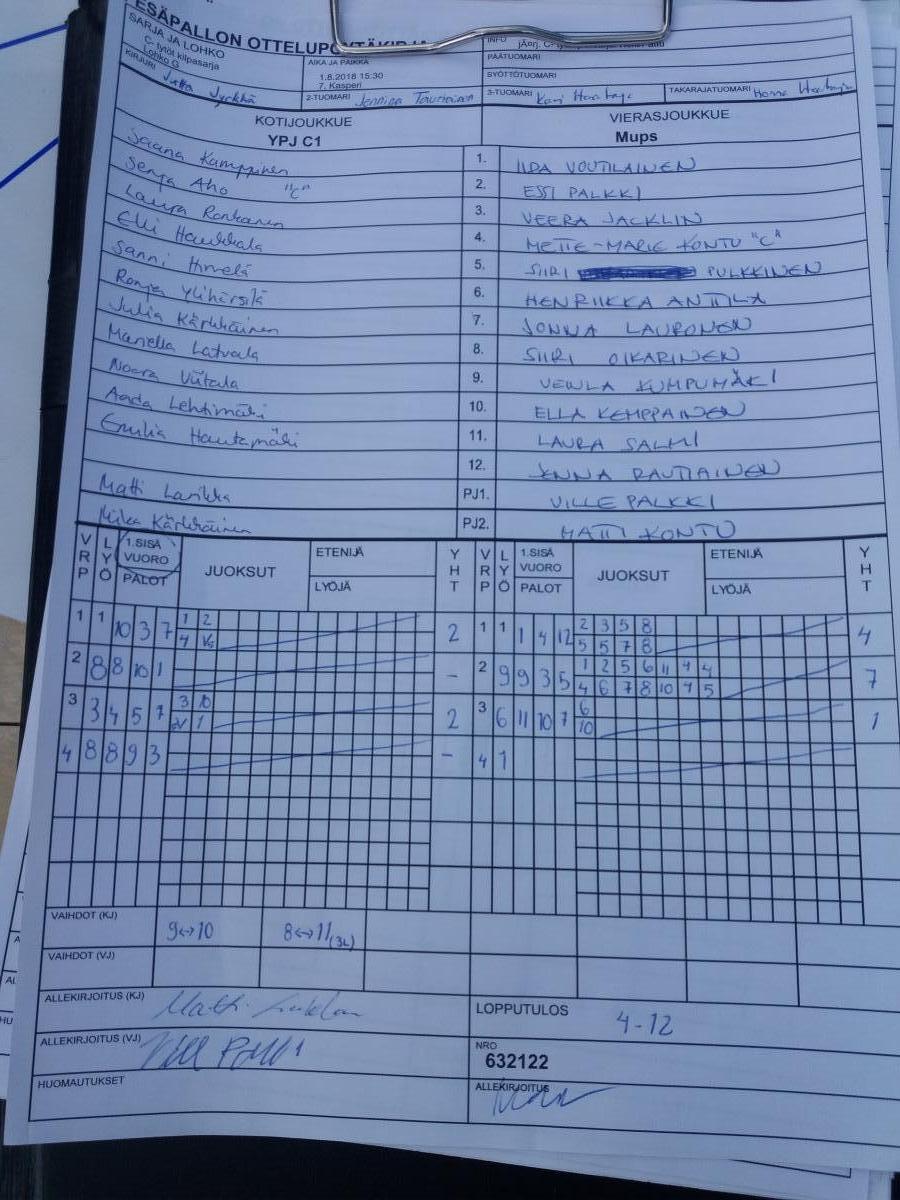 ESÄPALLON OTTELUPÖYTÄKIRJA
SARJA JA LOHKO
C-tytöt kilpasarja
Lohko G
AIKA JA PAIKKA
1.8.2018 15:30
7. Kasperi
INFO
PÄÄTUOMARI
SYÖTTÖTUOMARI
KIRJURI Jutta Jyrkkä
2-TUOMARI Jennina Tauriainen
3-TUOMARI Kari
TAKARAJATUOMARI
KOTIJOUKKUE VIERASJOUKKUE
YPJ C1 Mups
Saana Kamppinen 1. IIDA VOUTILAINEN
Senja Aho "C" 2. ESSI PALKKI
Laura Ronkanen 3. VEERA JACKLIN
Elli Haukkala 4. METTE-MARIE KONTU "C"
Sanni Himelä 5. SIIRI PULKKINEN
Ronja Ylihärsilä 6. HENRIIKKA ANTTILA
Julia Kärkkäinen 7. JONNA LAURONEN
Manella Latvala 8. SIIRI OIKARINEN
Noora Viitala 9. VENLA KUMPUMÄKI
Aada Lehtimäki 10. ELLA KEMPPAINEN
Emilia Hautamäki 11. LAURA SALMI
12. JENNA RAUTIAINEN
Matti Larikka PJ1. VILLE PALKKI
Mika Kärkkäinen PJ2. MATTI KONTU
VRP LYÖ 1.SISÄ VUORO PALOT JUOKSUT ETENIJÄ LYÖJÄ YHT VRP LYÖ 1.SISÄ VUORO PALOT JUOKSUT ETENIJÄ LYÖJÄ YHT
1 1 10 3 7 1 2 2 1 1 1 4 12 2 3 5 8 4
4 5 5 7 8
2 8 8 10 1 - 2 9 9 3 5 1 2 5 6 11 9 4 7
4 6 7 8 10 9 5
3 3 4 5 7 3 10 2 3 6 11 10 7 6 1
2V 1 10
4 8 8 9 3 - 4 1
VAIHDOT (KJ) 9↔10 8↔11 (3L)
VAIHDOT (VJ)
ALLEKIRJOITUS (KJ) Matti
LOPPUTULOS 4-12
ALLEKIRJOITUS (VJ)
NRO
632122
HUOMAUTUKSET
ALLEKIRJOITUS